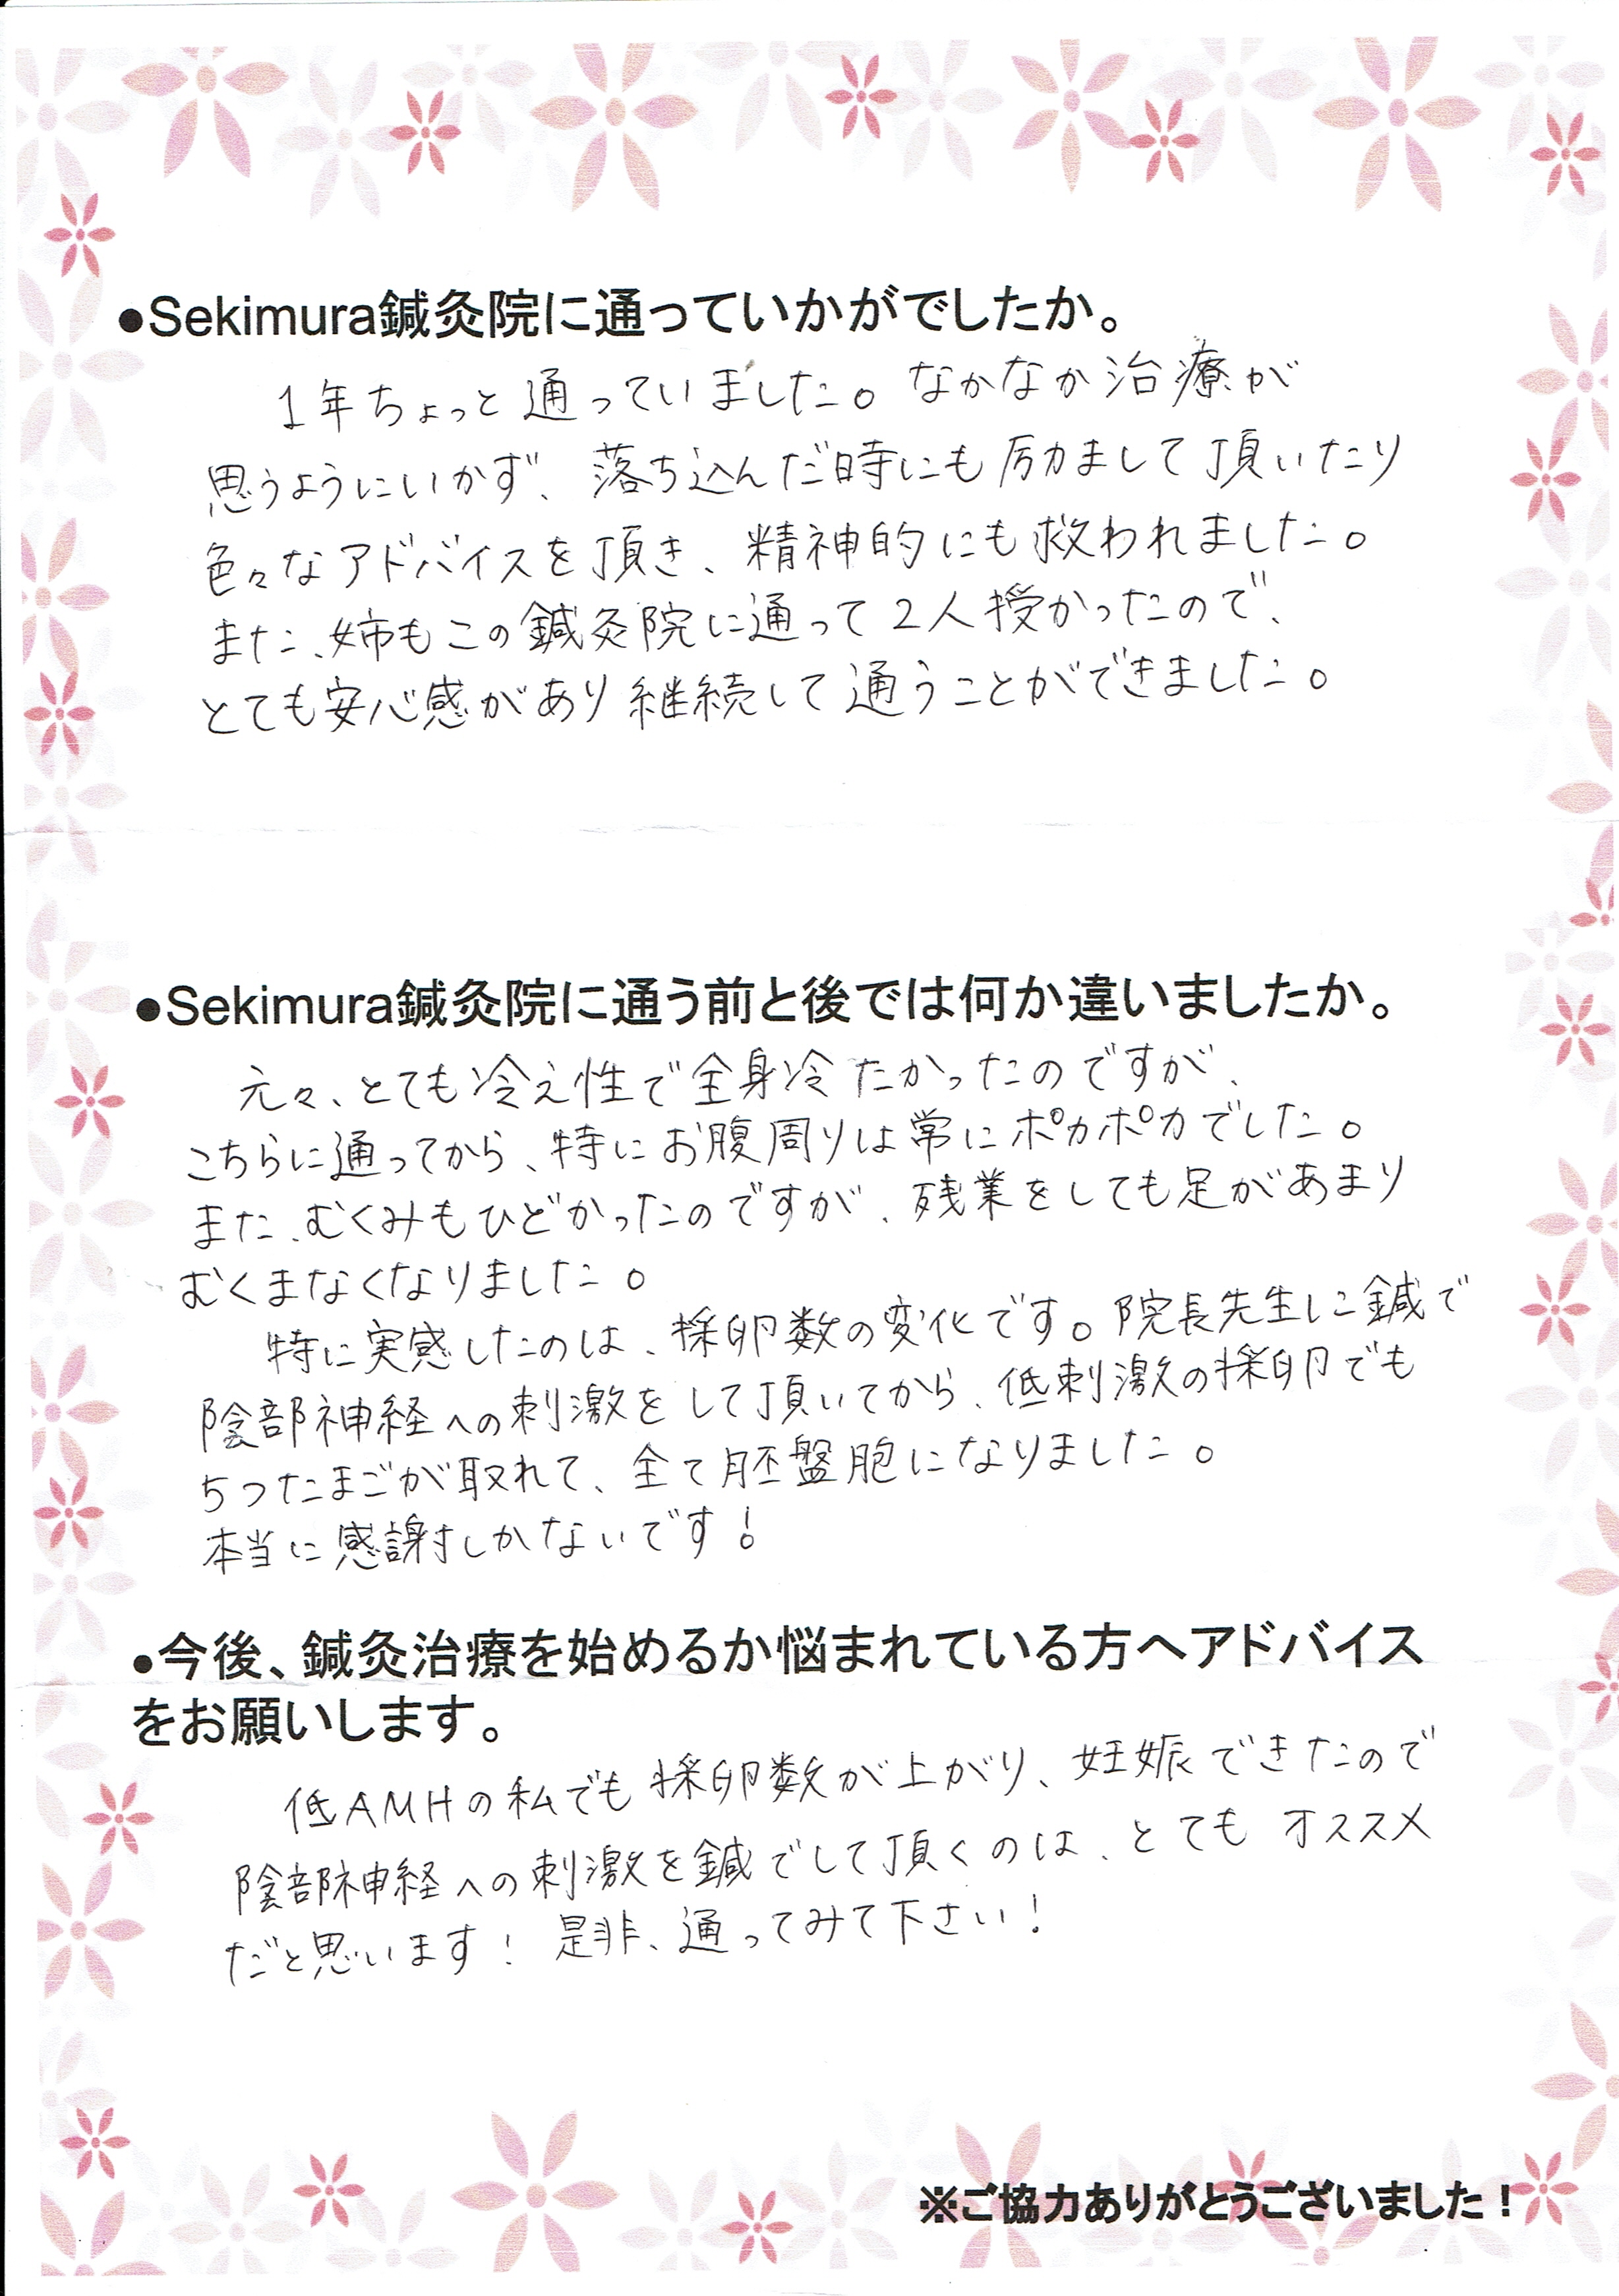 ●Sekimura鍼灸院に通っていかがでしたか。
1年ちょっと通っていました。なかなか治療が
思うようにいかず、落ち込んだ時にも励まして頂いたり
色々なアドバイスを頂き、精神的にも救われました。
また、姉もこの鍼灸院に通って2人授かったので、
とても安心感があり継続して通うことができました。
●Sekimura鍼灸院に通う前と後では何か違いましたか。
元々、とても冷え性で全身冷たかったのですが、
こちらに通ってから、特にお腹周りは常にポカポカでした。
また、むくみもひどかったのですが、残業をしても足があまり
むくまなくなりました。
特に実感したのは、採卵数の変化です。院長先生に鍼で
陰部神経への刺激をして頂いてから、低刺激の採卵でも
5つたまごが取れて、全て胚盤胞になりました。
本当に感謝しかないです！
●今後、鍼灸治療を始めるか悩まれている方へアドバイス
をお願いします。
低AMHの私でも採卵数が上がり、妊娠できたので
陰部神経への刺激を鍼でして頂くのは、とてもオススメ
だと思います！是非、通ってみて下さい！
※ご協力ありがとうございました！